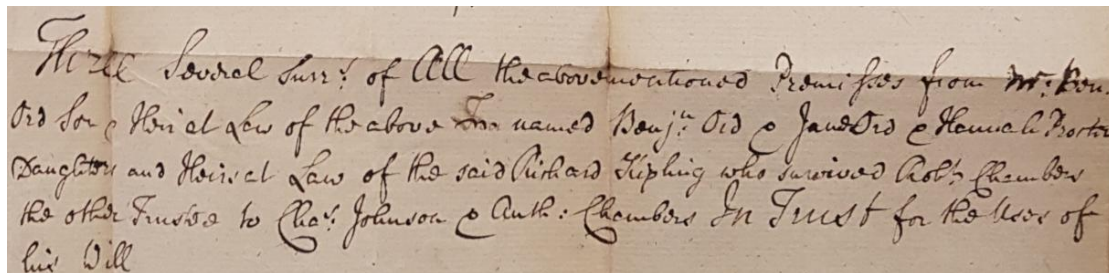 Three Several Surrs. of All the abovementioned Premisses from Mr. Ben.
Ord Son & Heir at Law of the above named Benjn. Ord & Jane Ord & Hannah Procter
Daughters and Heirs at Law of the said Richard Kipling who survived Robt. Chambers
the other Trustee to Chas. Johnson & Anth: Chambers In Trust for the Uses of
his Will